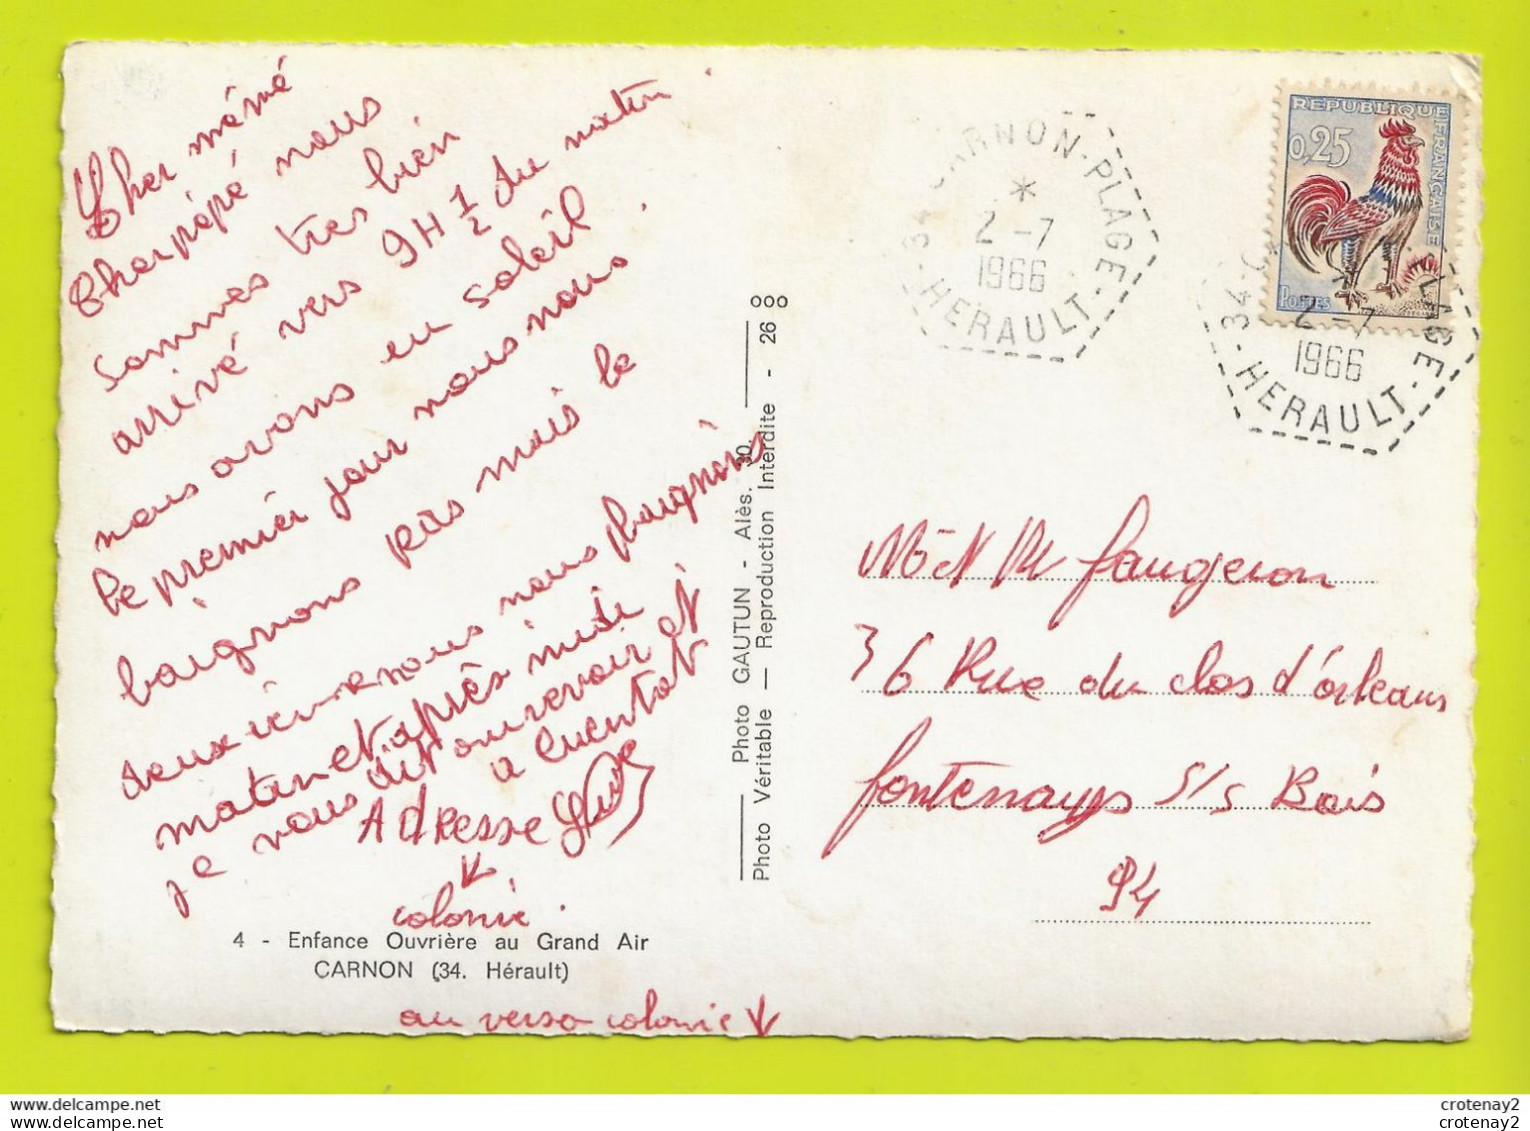 Cher mémé
Cherpépé nous
sommes tres bien
arrivé vers 9H 1/2 du matin
nous avons eu soleil
le premier jour nous nous
baignons pas mais le
nous nous baignons
matin et après midi
je vous dit ourevoir et
a
Adresse
colonie.
4 - Enfance Ouvrière au Grand Air
CARNON (34. Hérault)
au verso colonie
Photo GAUTUN - Alès. 30.
Photo Véritable — Reproduction Interdite - 26
REPUBLIQUE FRANÇAISE
0,25
POSTES
34 CARNON-PLAGE
2-7
1966
HERAULT
34
PLAGE
2-7
1966
HERAULT
Faugeron
36 Rue du clos d'órleans
fontenays s/s Bois
94
crotenay2
crotenay2
crotenay2
crotenay2